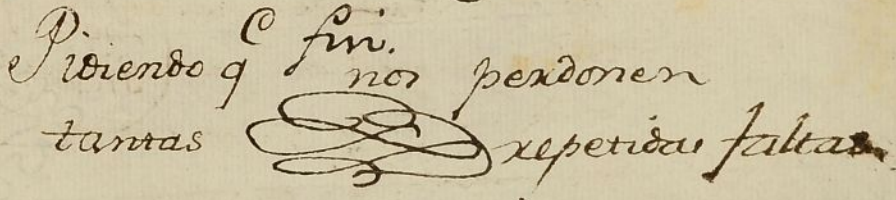 fin.
Pidiendo q nos perdonen
tantas repetidas faltas